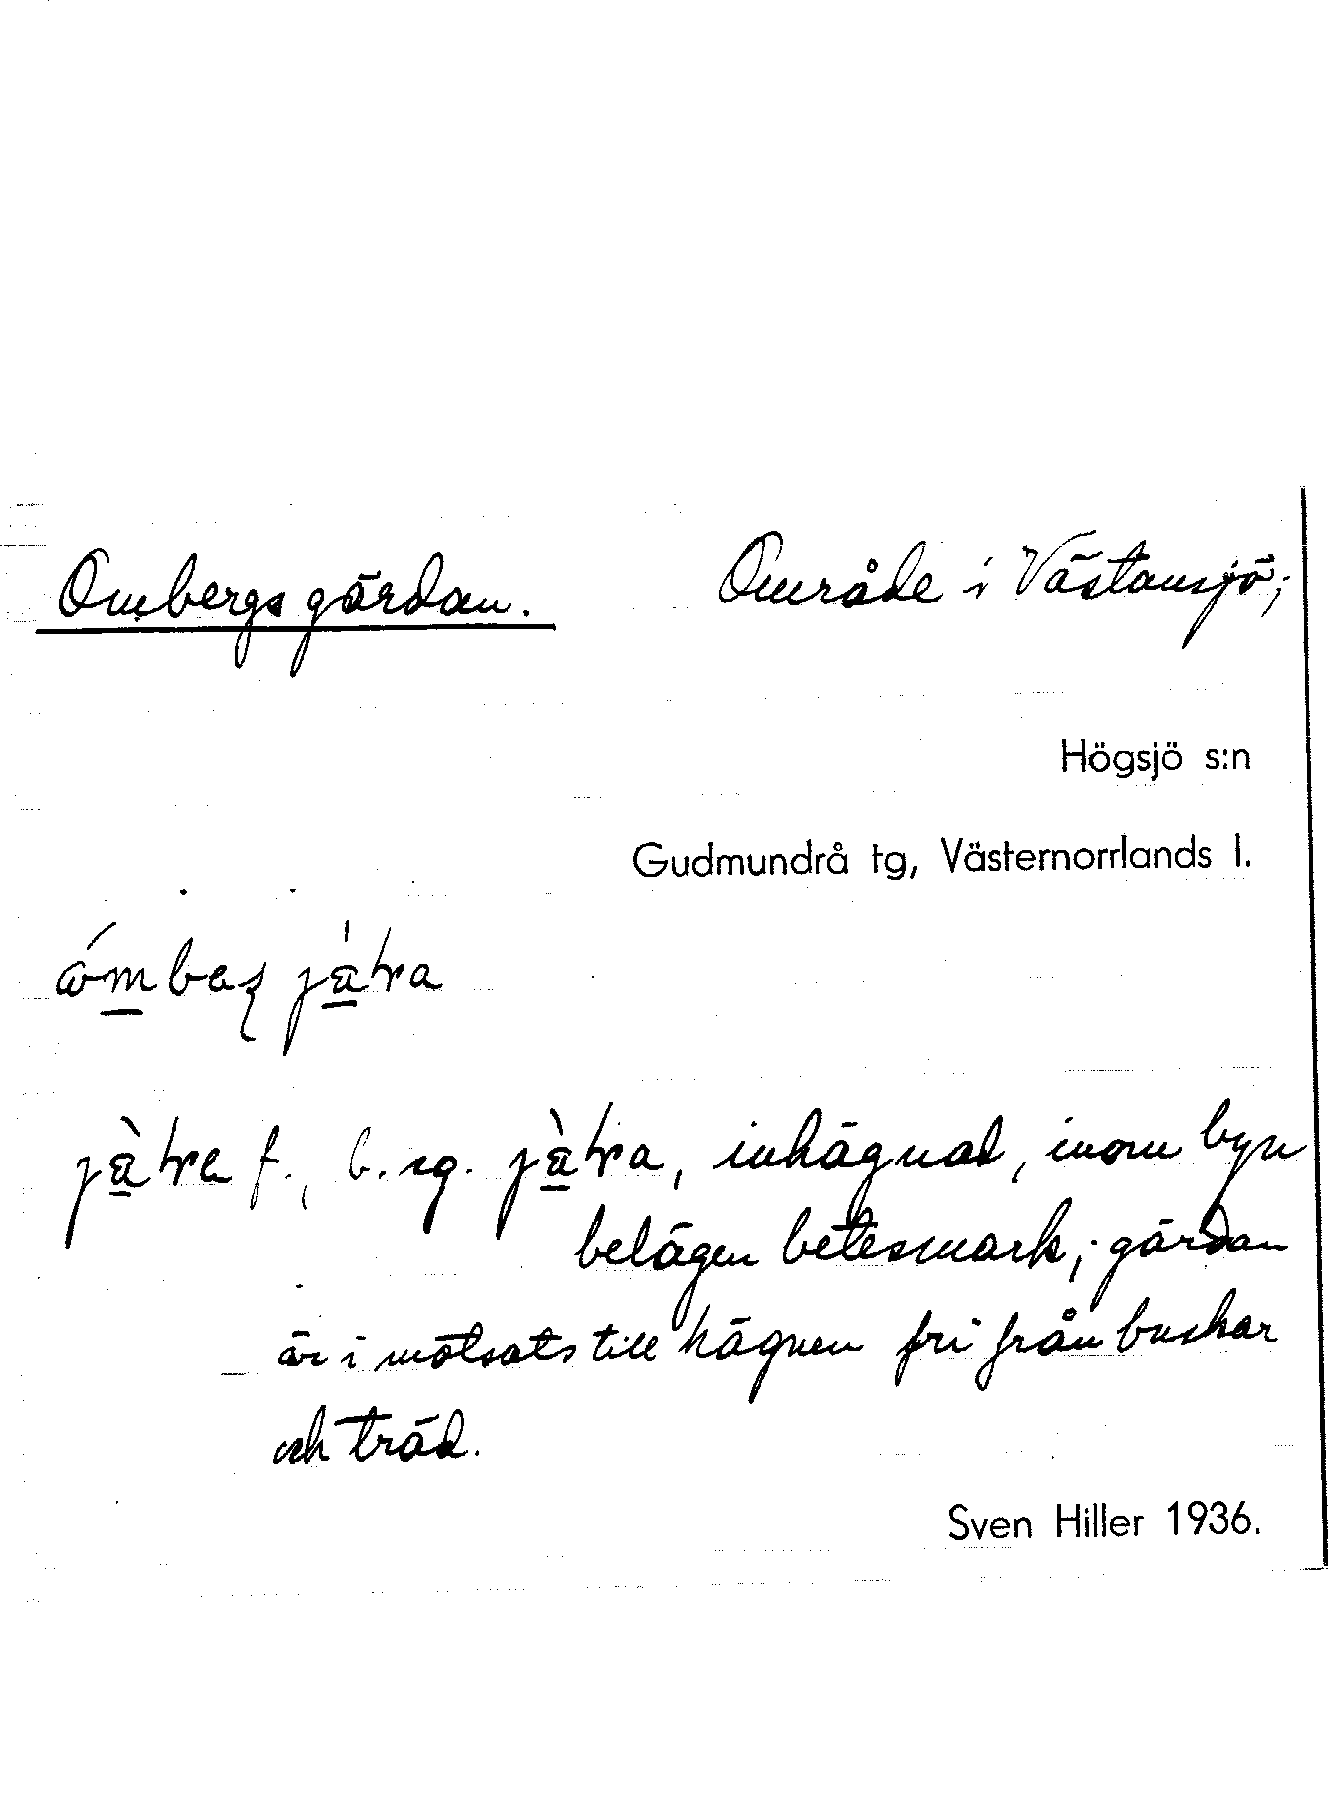 Ombergsgärdan. Område i Västansjö;
Högsjö s:n
Gudmundrå tg, Västernorrlands l.
f., b. sg. , inhägnad, inom byn
belägen betesmark; gärdan
är i motsats till hägnen fri från buskar
och träd.
Sven Hiller 1936.